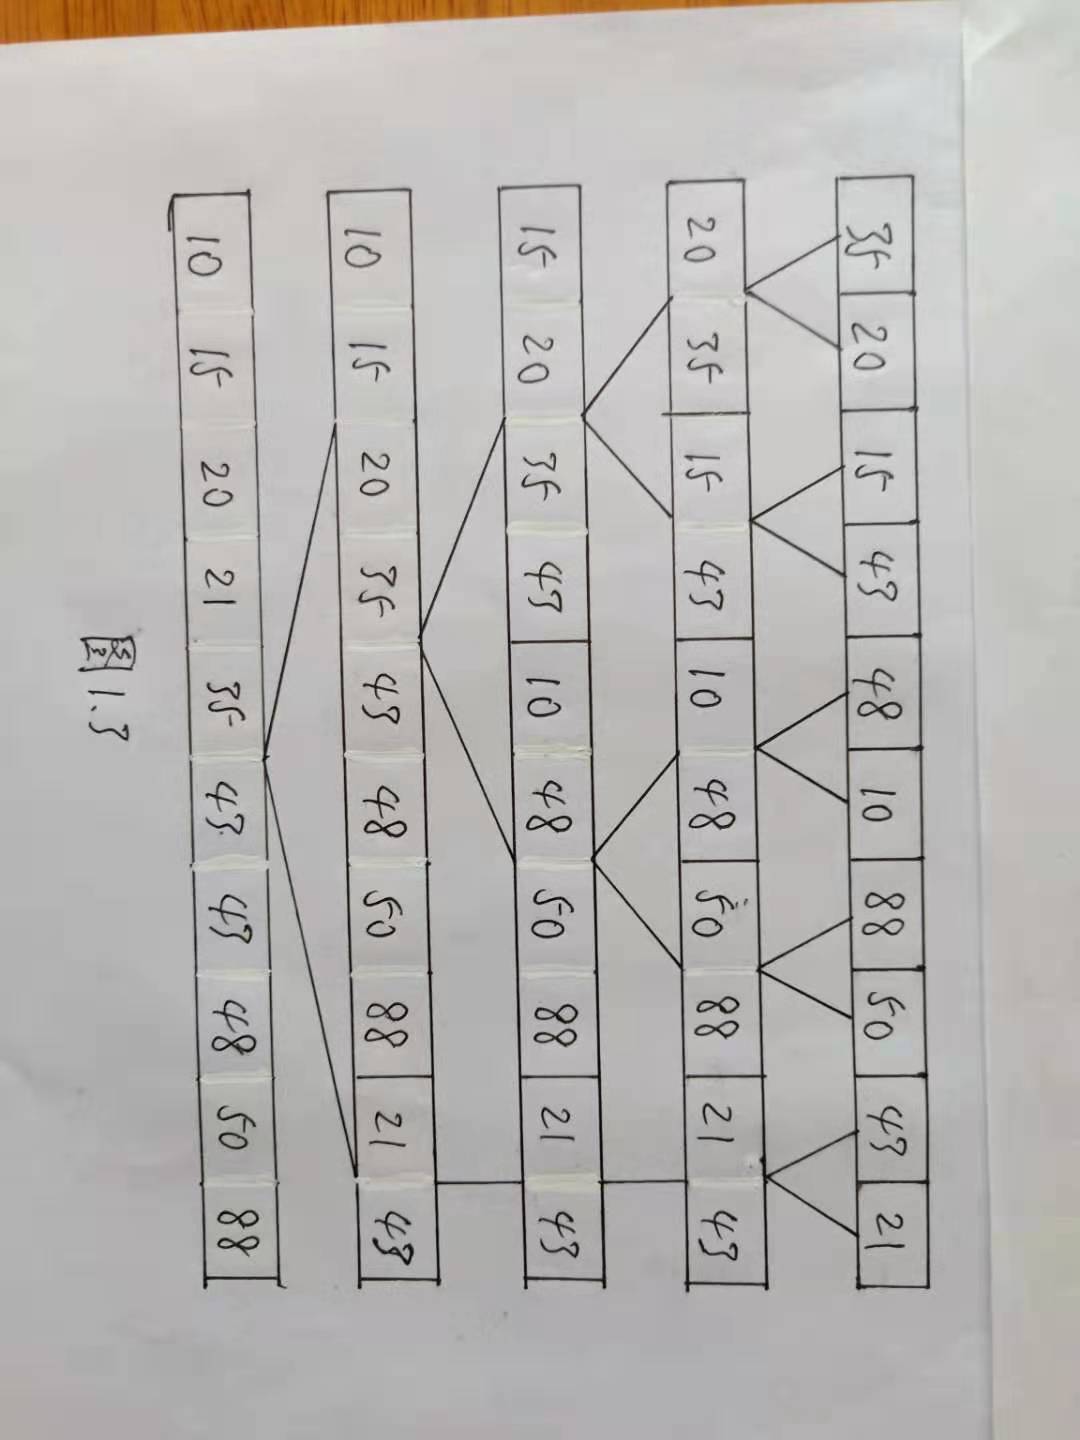 35 20 15 43 48 10 88 50 43 21
20 35 15 43 10 48 50 88 21 43
15 20 35 43 10 48 50 88 21 43
10 15 20 35 43 48 50 88 21 43
10 15 20 21 35 43 43 48 50 88
图1.3